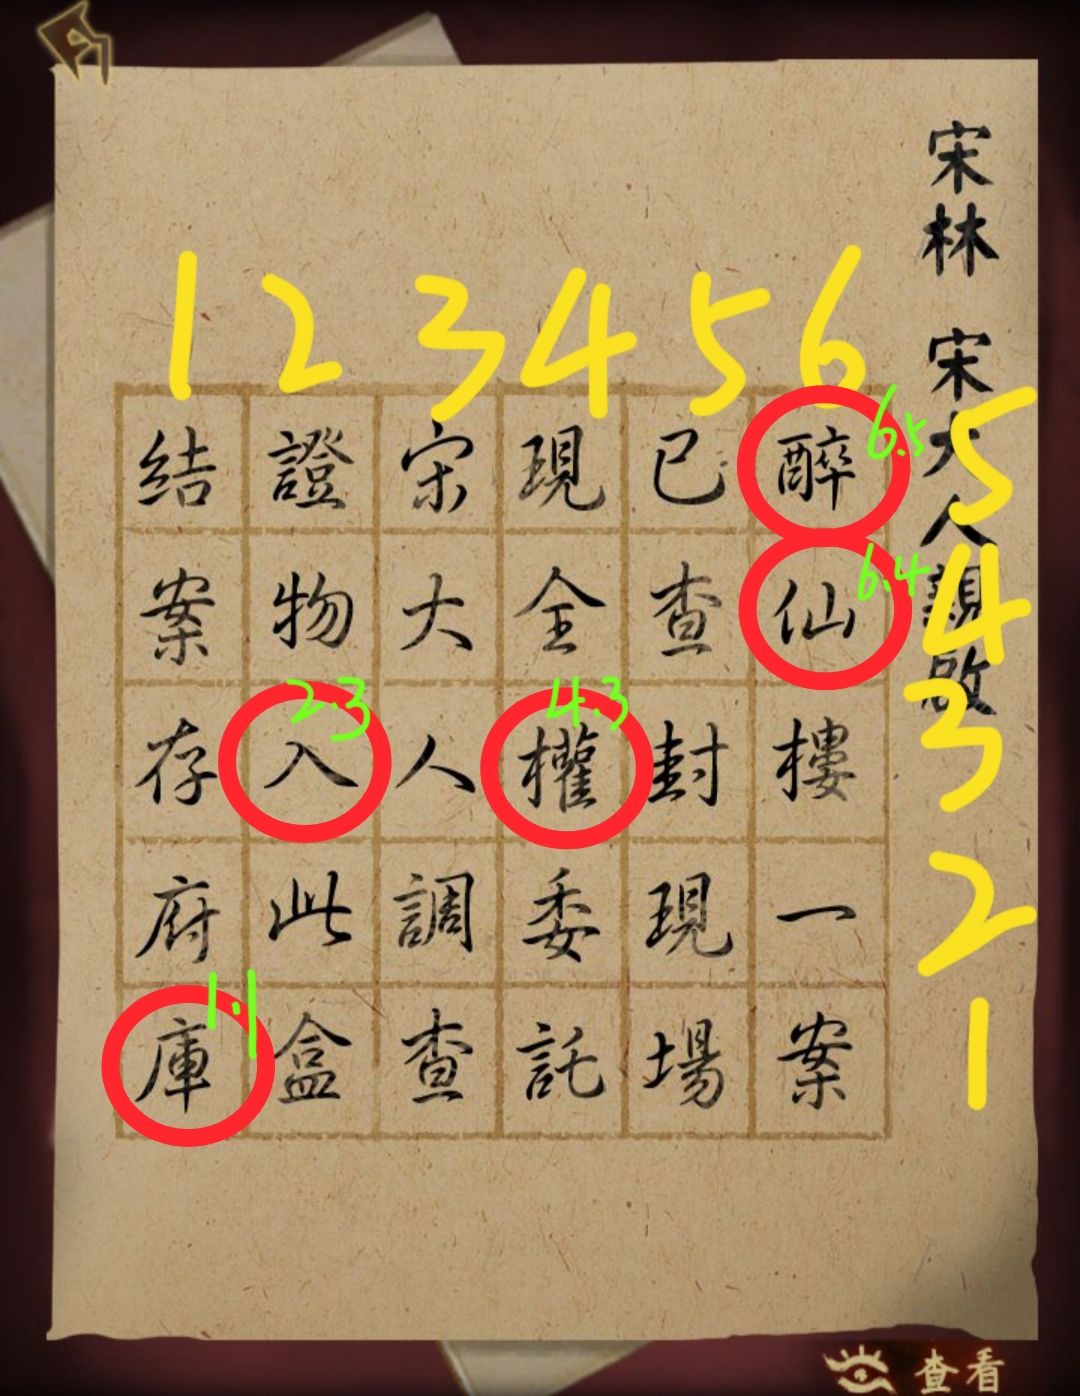 宋林 宋大人親啟
醉仙樓一案
已查封現場
現全權委託
宋大人調查
證物入此盒
結案存府庫
1 2 3 4 5 6
5
4
3
2
1
6.5
6.4
2.3
4.3
1.1
查看